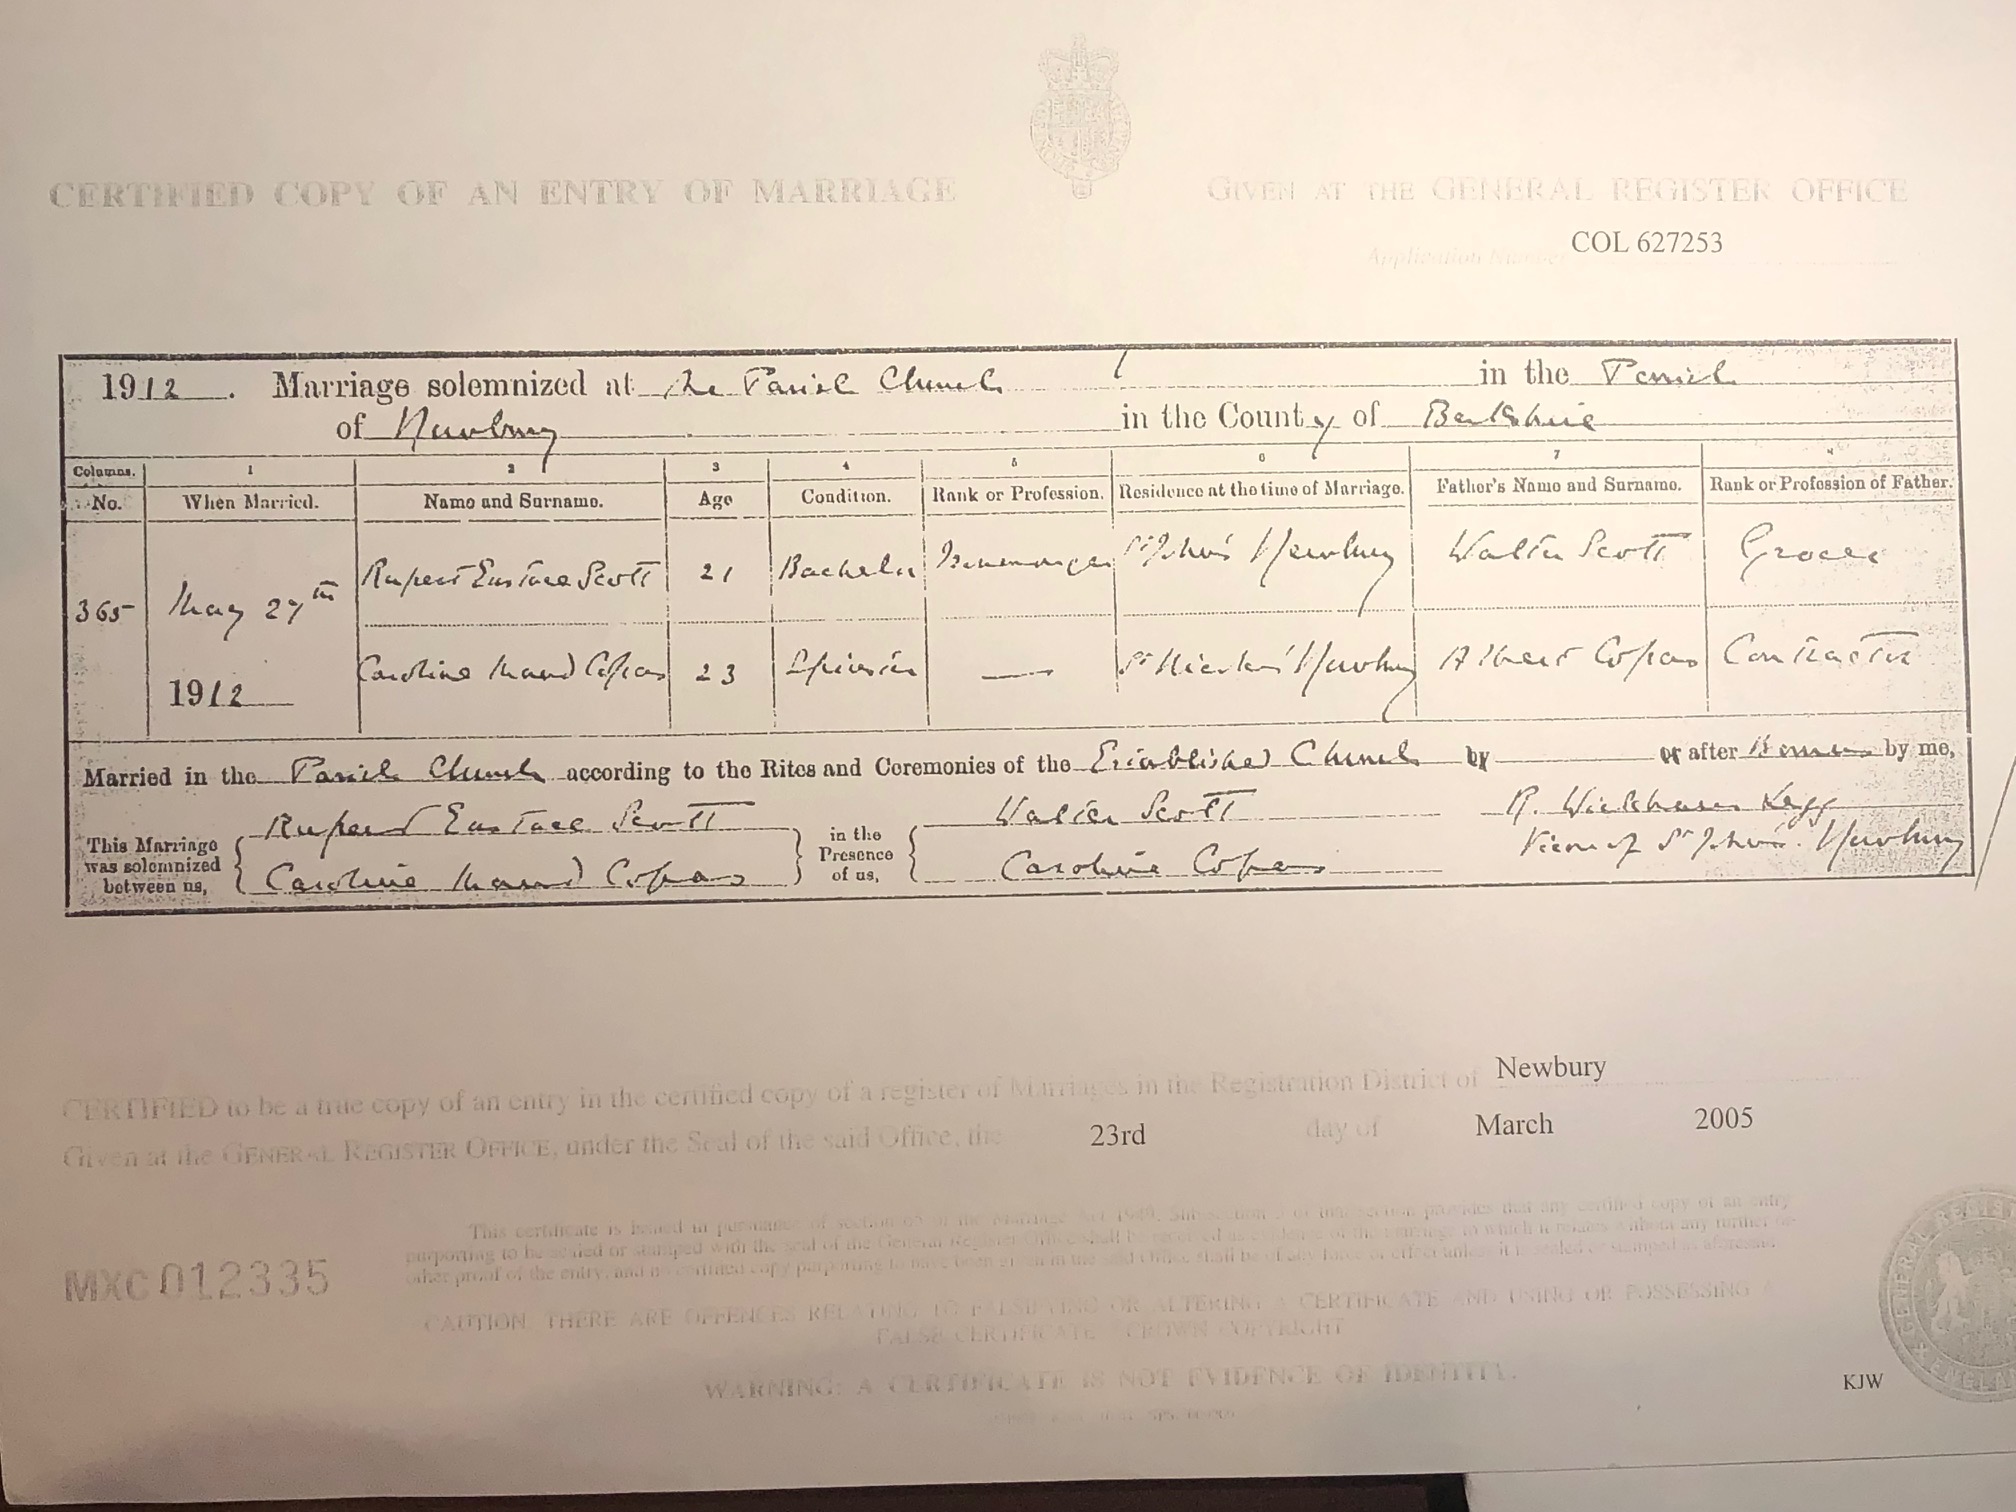 CERTIFIED COPY OF AN ENTRY OF MARRIAGE
GIVEN AT THE GENERAL REGISTER OFFICE
Application Number COL 627253
1912. Marriage solemnized at the Parish Church in the Parish
of Newbury in the County of Berkshire
Columns. 1 2 3 4 5 6 7 8
No. When Married. Name and Surname. Age Condition. Rank or Profession. Residence at the time of Marriage. Father's Name and Surname. Rank or Profession of Father.
Rupert Eustace Scott 21 Bachelor Ironmonger St John's Newbury Walter Scott Grocer
365 May 27th
Caroline Maud Copas 23 Spinster — St Nicholas' Newbury Albert Copas Contractor
1912
Married in the Parish Church according to the Rites and Ceremonies of the Established Church by or after Banns by me,
This Marriage was solemnized between us,
Rupert Eustace Scott
Caroline Maud Copas
in the Presence of us,
Walter Scott
Caroline Copas
R. Wickham Legg
Vicar of St John's. Newbury
CERTIFIED to be a true copy of an entry in the certified copy of a register of Marriages in the Registration District of Newbury
Given at the GENERAL REGISTER OFFICE, under the Seal of the said Office, the 23rd day of March 2005
This certificate is issued in pursuance of section 65 of the Marriage Act 1949. Sub-section 3 of that section provides that any certified copy of an entry
purporting to be sealed or stamped with the seal of the General Register Office shall be received as evidence of the marriage to which it relates without any further or
other proof of the entry, and no certified copy purporting to have been given in the said Office shall be of any force or effect unless it is sealed or stamped as aforesaid.
MXC 012335
CAUTION: THERE ARE OFFENCES RELATING TO FALSIFYING OR ALTERING A CERTIFICATE AND USING OR POSSESSING A
FALSE CERTIFICATE CROWN COPYRIGHT
WARNING: A CERTIFICATE IS NOT EVIDENCE OF IDENTITY.
KJW